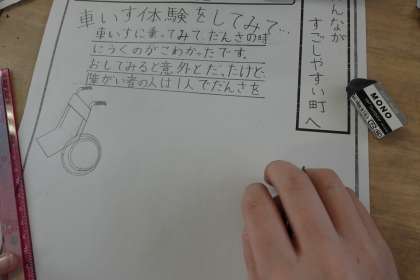 んなが
すごしやすい町へ
車いす体験をしてみて…
車いすに乗ってみて、だんさの時
にうくのがこわかったです。
おしてみると意外とだったけど、
障がい者の人は1人でだんさを
MONO